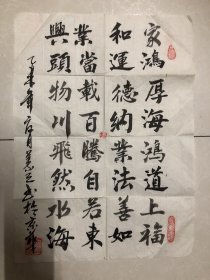 家鴻厚海鴻道上福
和運德納業法善如
業當載百騰自若東
興頭物川飛然水海
乙未年月